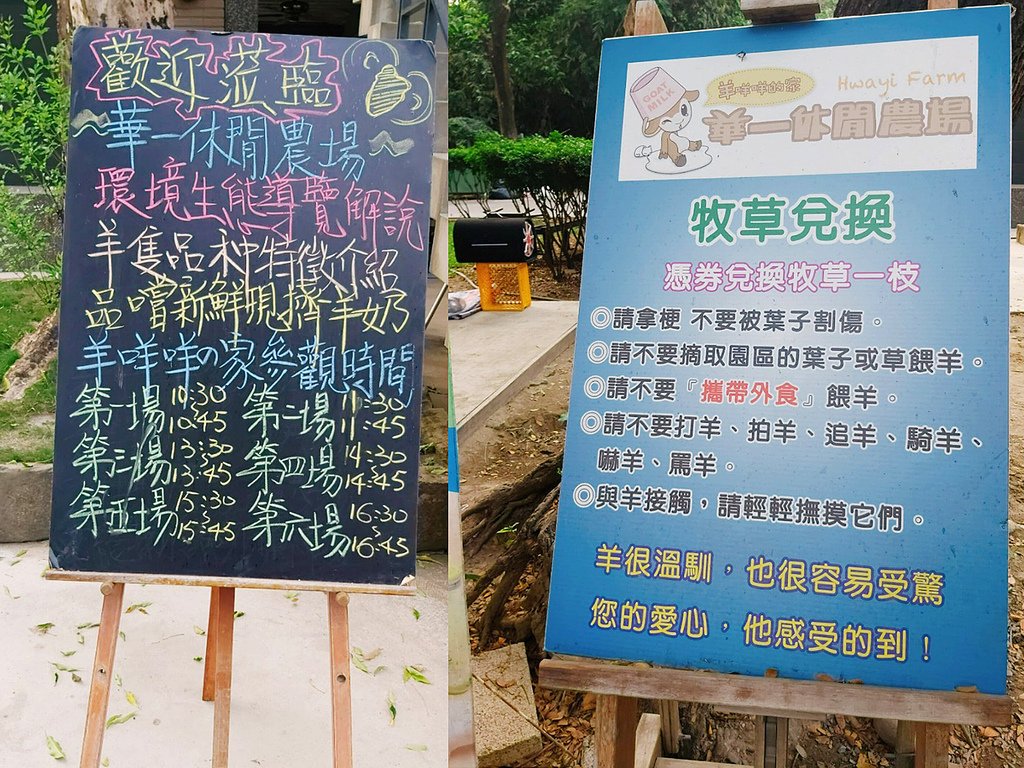 歡迎蒞臨
華一休閒農場
環境生態導覽解說
羊隻品种特徵介紹
品嚐新鮮現擠羊奶
羊咩咩の家參觀時間
第一場 10:30 ~ 10:45 第二場 11:30 ~ 11:45
第三場 13:30 ~ 13:45 第四場 14:30 ~ 14:45
第五場 15:30 ~ 15:45 第六場 16:30 ~ 16:45
GOAT MILK
羊咩咩的家
Hwayi Farm
華一休閒農場
牧草兌換
憑券兌換牧草一枝
◎請拿梗 不要被葉子割傷。
◎請不要摘取園區的葉子或草餵羊。
◎請不要『攜帶外食』餵羊。
◎請不要打羊、拍羊、追羊、騎羊、
嚇羊、罵羊。
◎與羊接觸，請輕輕撫摸它們。
羊很溫馴，也很容易受驚
您的愛心，他感受的到！